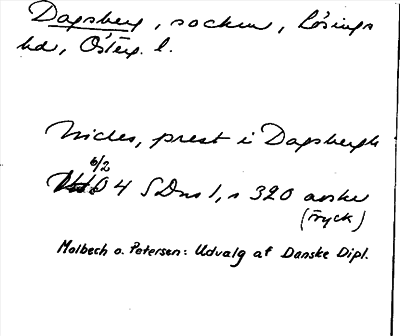 Dagsberg, socken, Lösings
hd, Österg. l.
Niclis, prest i Dagsbergh
6/2
04 SDns 1, s 320 avskr
(Tryck)
Molbech o. Petersen: Udvalg af Danske Dipl.